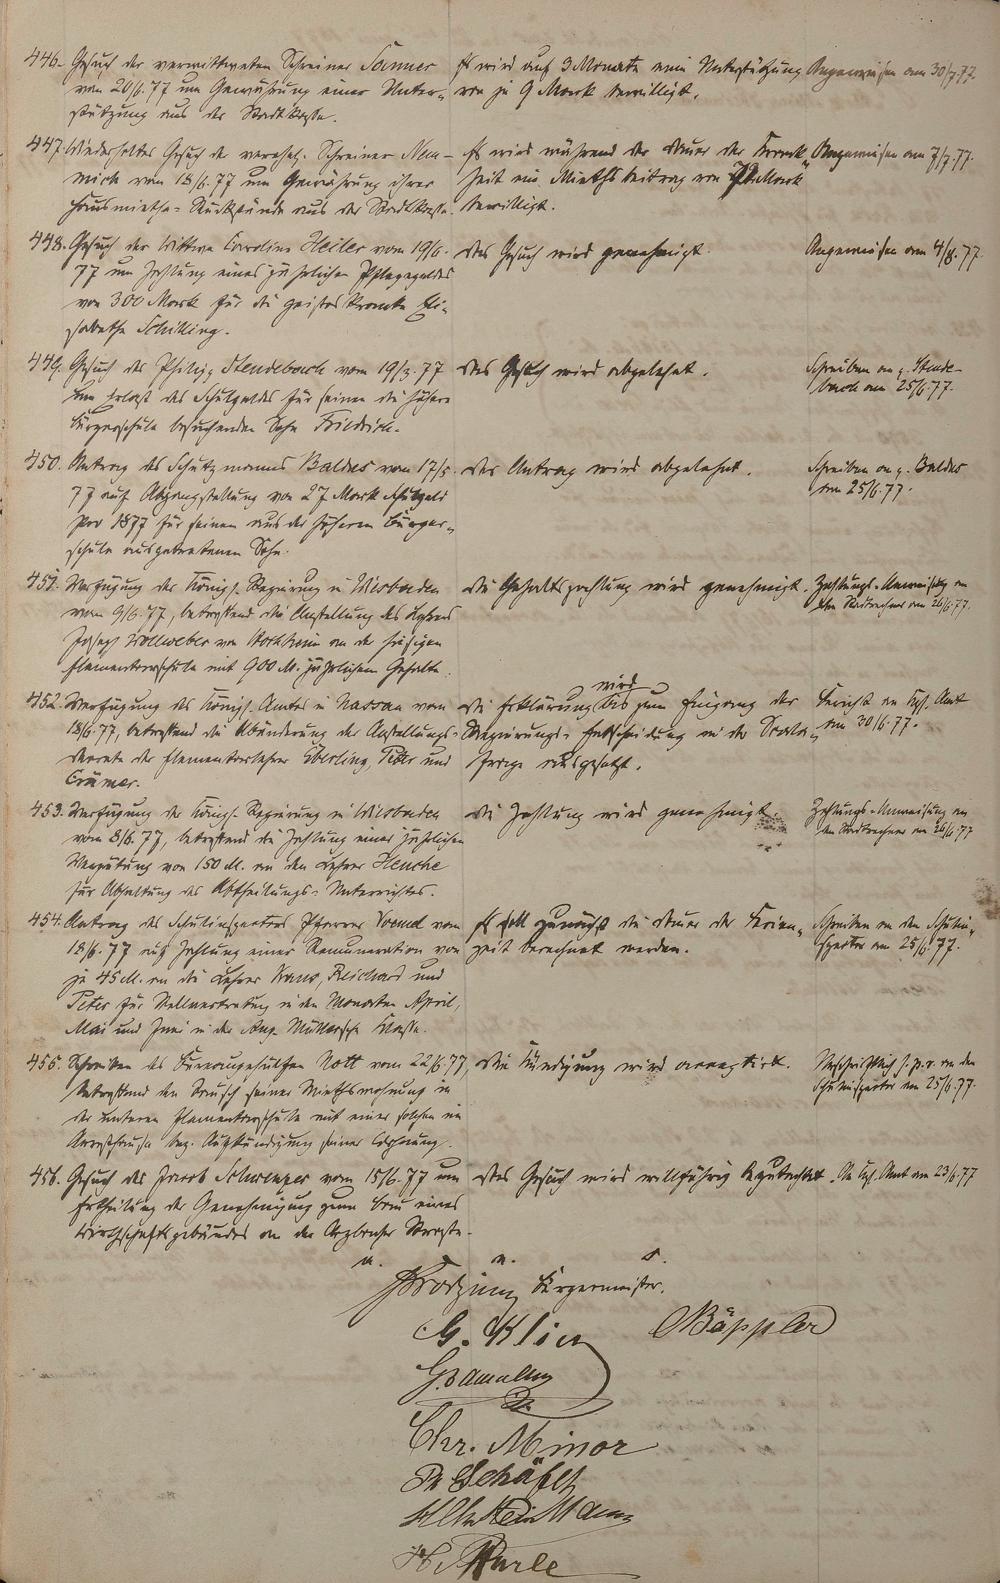 446. Gesuch der verwittweten Schreiner Sommer
vom 20/6.77 um Gewährung einer Unter-
stützung aus der Stadtkasse.
Es wird auf 3 Monate eine Unterstützung
von je 9 Mark bewilligt.
Angewiesen am 30/7.77.
447. Wiederholtes Gesuch der verehel. Schreiner
vom 18/6.77 um Gewährung ihrer
Hausmieths-Rückstände aus der Stadtkasse.
Es wird während der Dauer der Krank-
heit ein Miethsbeitrag von Mark
bewilligt.
Angewiesen am 7/7.77.
448. Gesuch der Wittwe Caroline Heiler vom 19/6.
77 um Zahlung eines jährlichen Pflegegeldes
von 300 Mark für die geisteskranke Eli-
sabetha Schilling.
Das Gesuch wird genehmigt.
Angewiesen am 4/8.77
449. Gesuch des Philipp Stendebach vom 19/3.77
um Erlaß des Schulgeldes für seinen die höhere
Bürgerschule besuchenden Sohn Friedrich.
Das Gesuch wird abgelehnt.
Schreiben an g. Stende-
bach am 25/6.77.
450. Antrag des Schutzmanns Baldes vom 17/5.
77 auf Abgangstellung von 27 Mark Schulgeld
pro 1877 für seinen aus der höheren Bürger-
schule ausgetretenen Sohn.
Der Antrag wird abgelehnt.
Schreiben an g. Baldes
am 25/6.77.
451. Verfügung der Königl. Regierung in Wiesbaden
vom 9/6.77, betreffend die Anstellung des Lehrers
Joseph Wollweber von Hochheim an der hiesigen
Elementarschule mit 900 M. jährlichem Gehalte.
Die Gehaltszahlung wird genehmigt.
Zahlungs-Anweisung an
den Stadtrechner am 26/6.77.
452. Verfügung des Königl. Amtes in Nassau vom
18/6.77, betreffend die Abänderung der Anstellungs-
decrete der Elementarlehrer Eberling, Peter und
Crämer.
wird
Die Erklärung bis zum Eingang der
Regierungs-Entscheidung in der Scala-
frage ausgesetzt.
Bericht an Kgl. Amt
am 30/6.77.
453. Verfügung der Königl. Regierung in Wiesbaden
vom 8/6.77, betreffend die Zahlung einer jährlichen
Vergütung von 150 M. an den Lehrer Heuche
für Abhaltung des Abtheilungs-Unterrichtes.
Die Zahlung wird genehmigt
Zahlungs-Anweisung an
den Stadtrechner am 26/6.77
454. Antrag des Schulinspectors Pfarrer vom
18/6.77 auf Zahlung einer Remuneration von
je 45 M. an die Lehrer Kranz, Reichard und
Peter für Stellvertretung in den Monaten April,
Mai und Juni in der Aug. Müller'schen Klasse.
Es soll zunächst die Dauer der Ferien-
zeit berechnet werden.
Schreiben an den Schulin-
spector am 25/6.77.
455. Schreiben des Bureaugehülfen Nott vom 22/6.77,
betreffend den Tausch seiner Miethswohnung in
der unteren Elementarschule mit einer solchen im
Arresthause bez. Aufkündigung seiner Wohnung.
Die Kündigung wird acceptirt.
Abschriftlich s. p. r. an den
Schulinspector am 25/6.77
456. Gesuch des Jacob Schwenzer vom 15/6.77 um
Ertheilung der Genehmigung zum Bau eines
Wirthschaftsgebäudes an der Arzbacher Strasse.
Das Gesuch wird willfährig begutachtet.
An Kgl. Amt am 23/6.77
a. u. s.
Bürgermeister.
G. Klein
Bäppler
Chr. Minor
Ph Schäfer